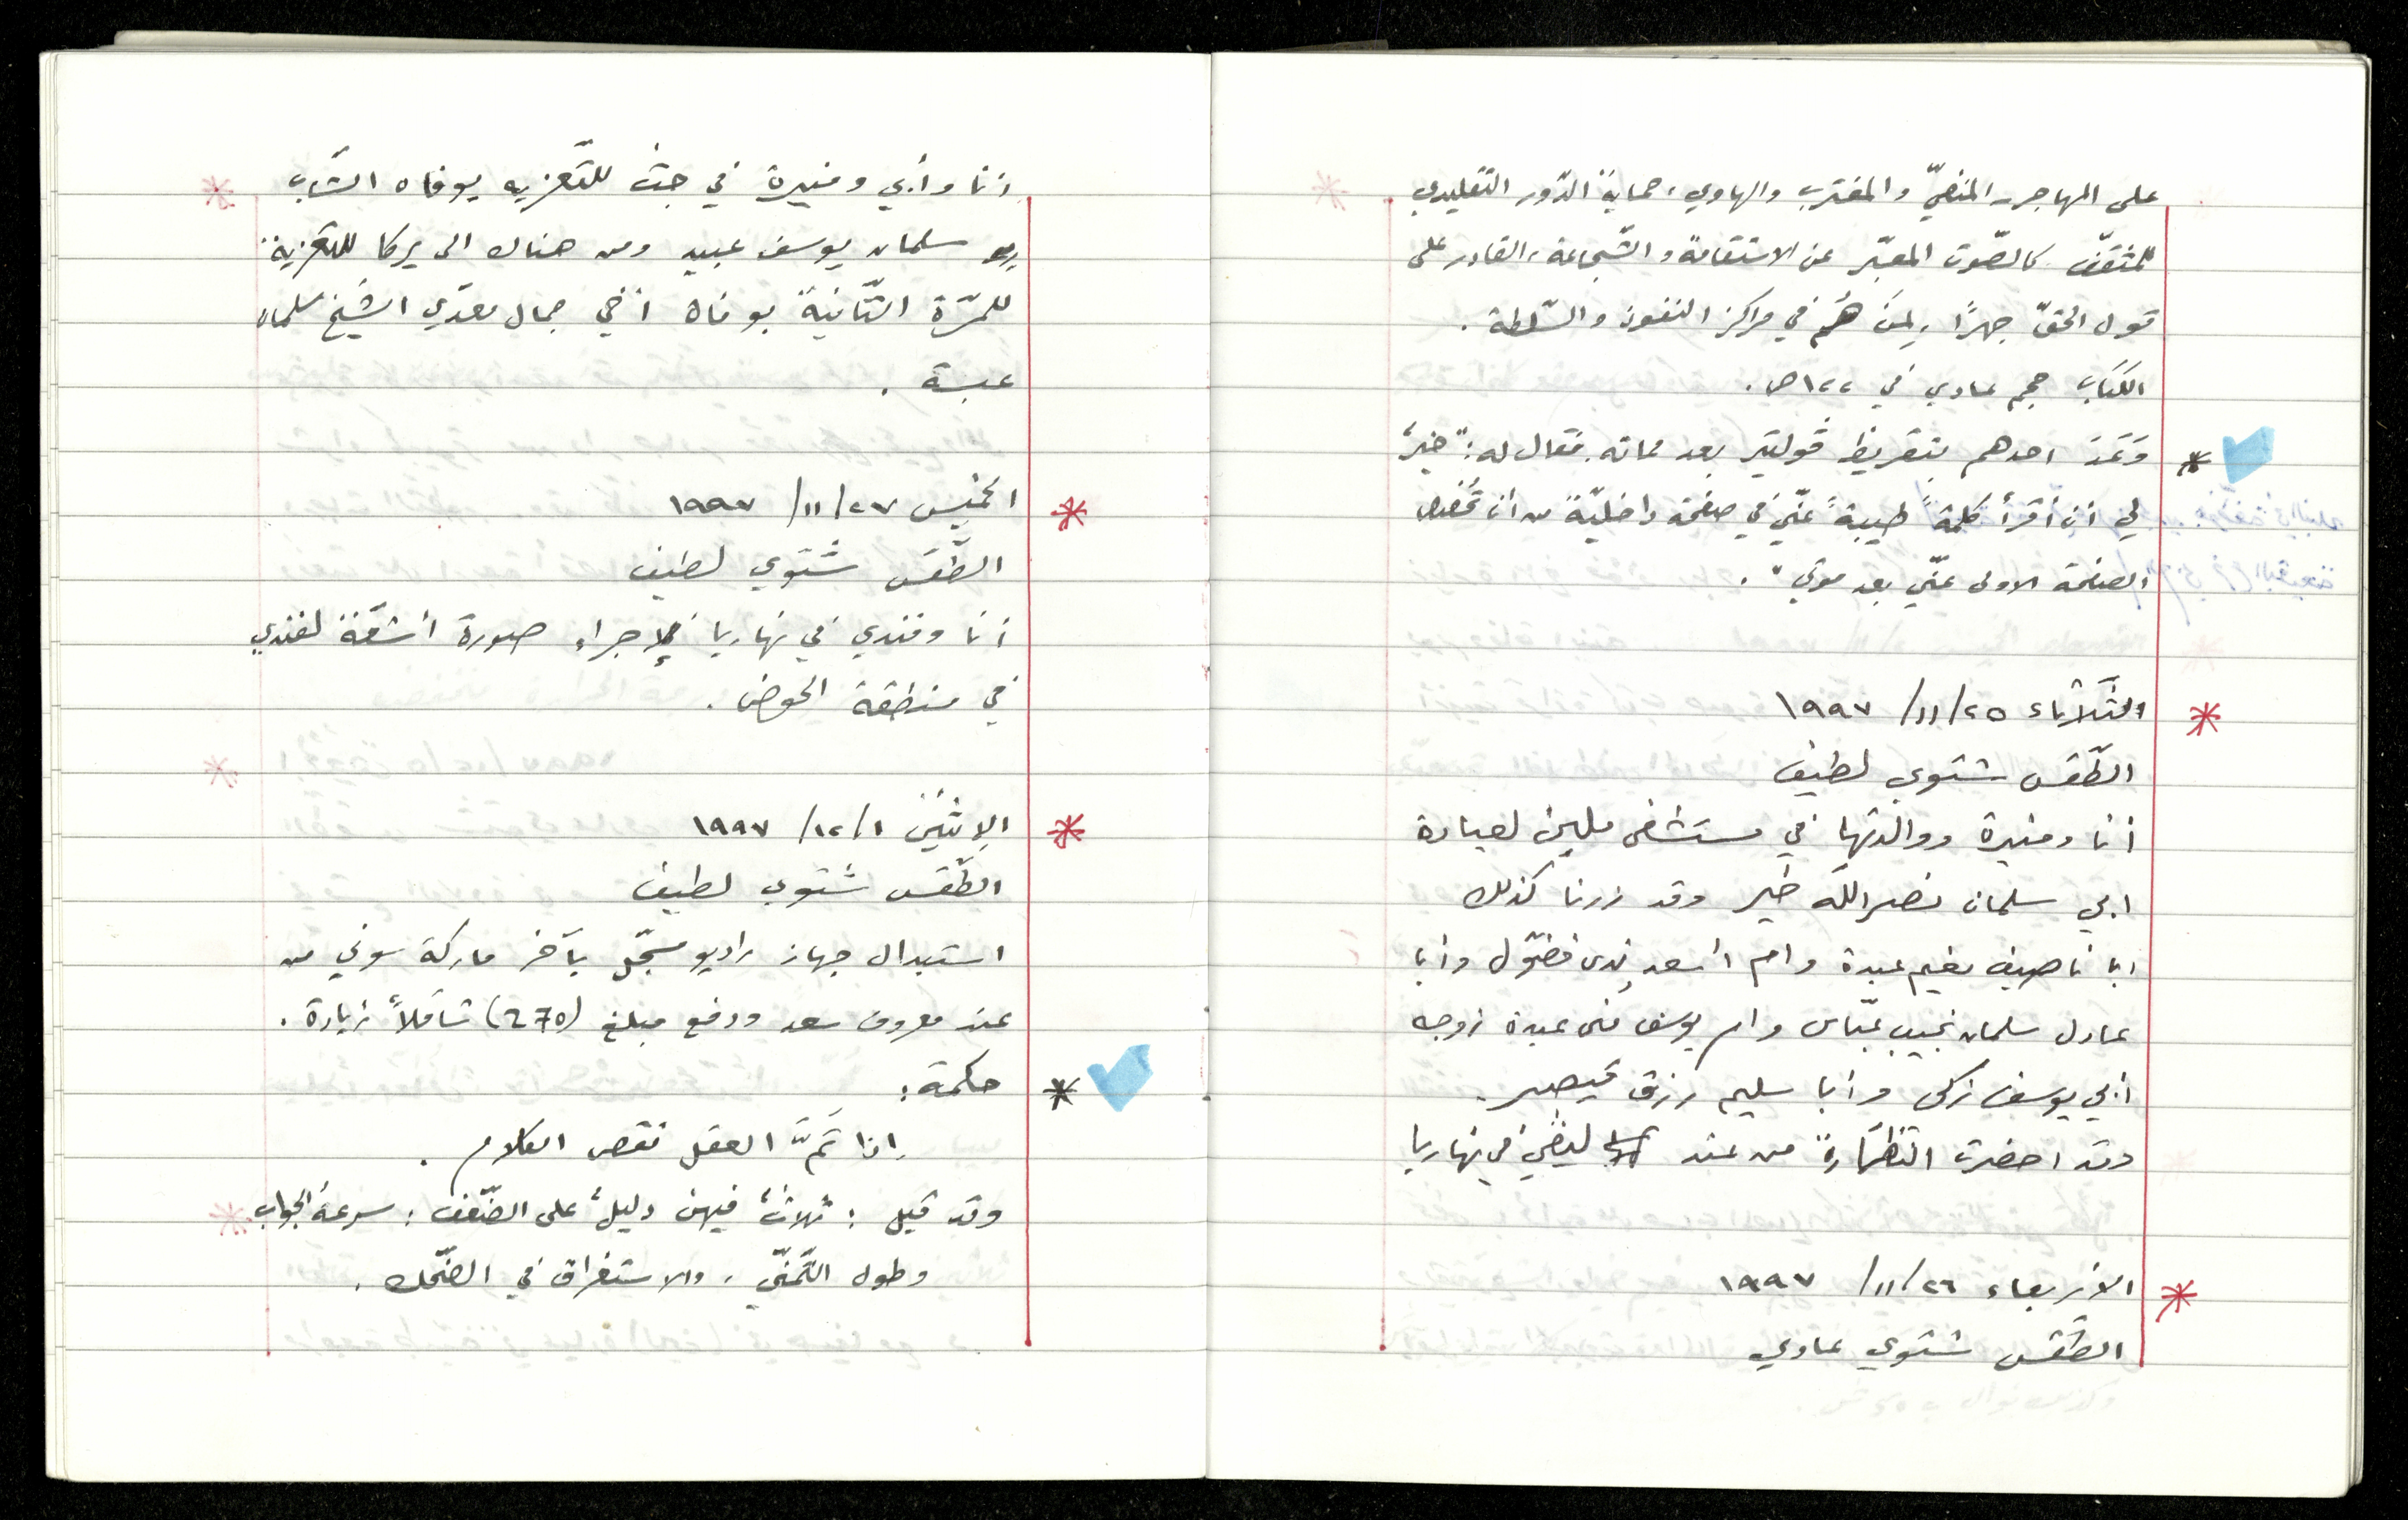 على المهاجر، المنفيّ والمغترب والهاوي، حماية الدّور التقليدي
للمثقّف كالصّوت المعبّر عن الاستقامة والشّجاعة، القادر على
قول الحقّ جهرًا، لِمَن هُم في مراكز النفوذ والسّلطة.
الكتاب حجم عادي في ١٢٢ ص.
* وَعَدَ احدهم بتقريظ ڤولتير بعد مماته. فقال له: "خيرٌ
لي أن أقرأ كلمةً طيبةً عنّي في صفحة داخليّة من أن تخصّص
الصفحة الاولى عنّي بعد موتي".
* الثّلاثاء ٢٥/ ١١/ ١٩٩٧
الطّقس شتوي لطيف
أنا ومنيرة ووالدتها في مستشفى ملبن لعيادة
ابي سلمان نصرالله خير وقد زرنا كذلك
ابا ناصيف نعيم عبدة وام أسعد ندى فضّول وأبا
عادل سلمان نجيب عبّاس وام يوسف منى عبدة زوجة
أبي يوسف زكي وأبا سليم رزق قيصر.
وقد احضرت النّظّارة من عند ليفي في نهاريا
* الأربعاء ٢٦/ ١١/ ١٩٩٧
الطّقس شتوي عادي
انا وأبي ومنيرة في جث للتّعزيه بوفاه الشّاب
سلمان يوسف عبيد ومن هناك الى يركا للتعزية
للمرّة الثّانية بوفاة أخي جمال معدّي الشيخ سلمان
عبسة.
* الخميس ٢٧/ ١١/ ١٩٩٧
الطّقس شتوي لطيف
أنا وفندي في نهاريا لإجراء صورة أشعّة لفندي
في منطقة الحوض.
* الإثنين ١/ ١٢/ ١٩٩٧
الطّقس شتوي لطيف
استبدال جهاز راديو مسجّل بآخر ماركة سوني من
عند معروف سعد ودفع مبلغ (٢٦٥) شاقلاً زيادة.
* حكمة:
إذا تَمَّ العقل نقص الكلام.
وقد قيل: ثلاثٌ فيهن دليلٌ على الضّعف: سرعة الجواب
وطول التّمنّي، والاستغراق في الضّحك.